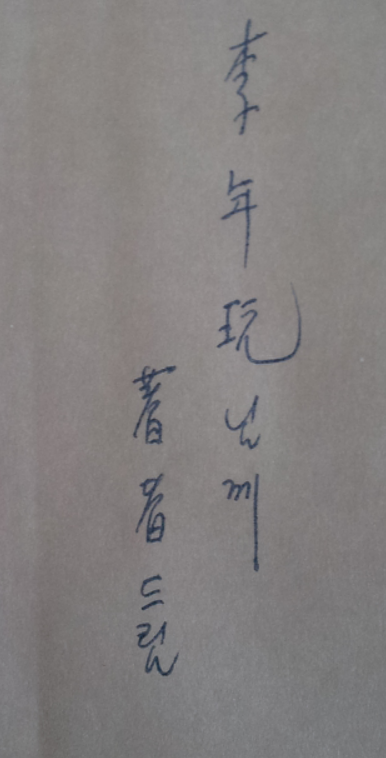 李年玩님께
著者드림